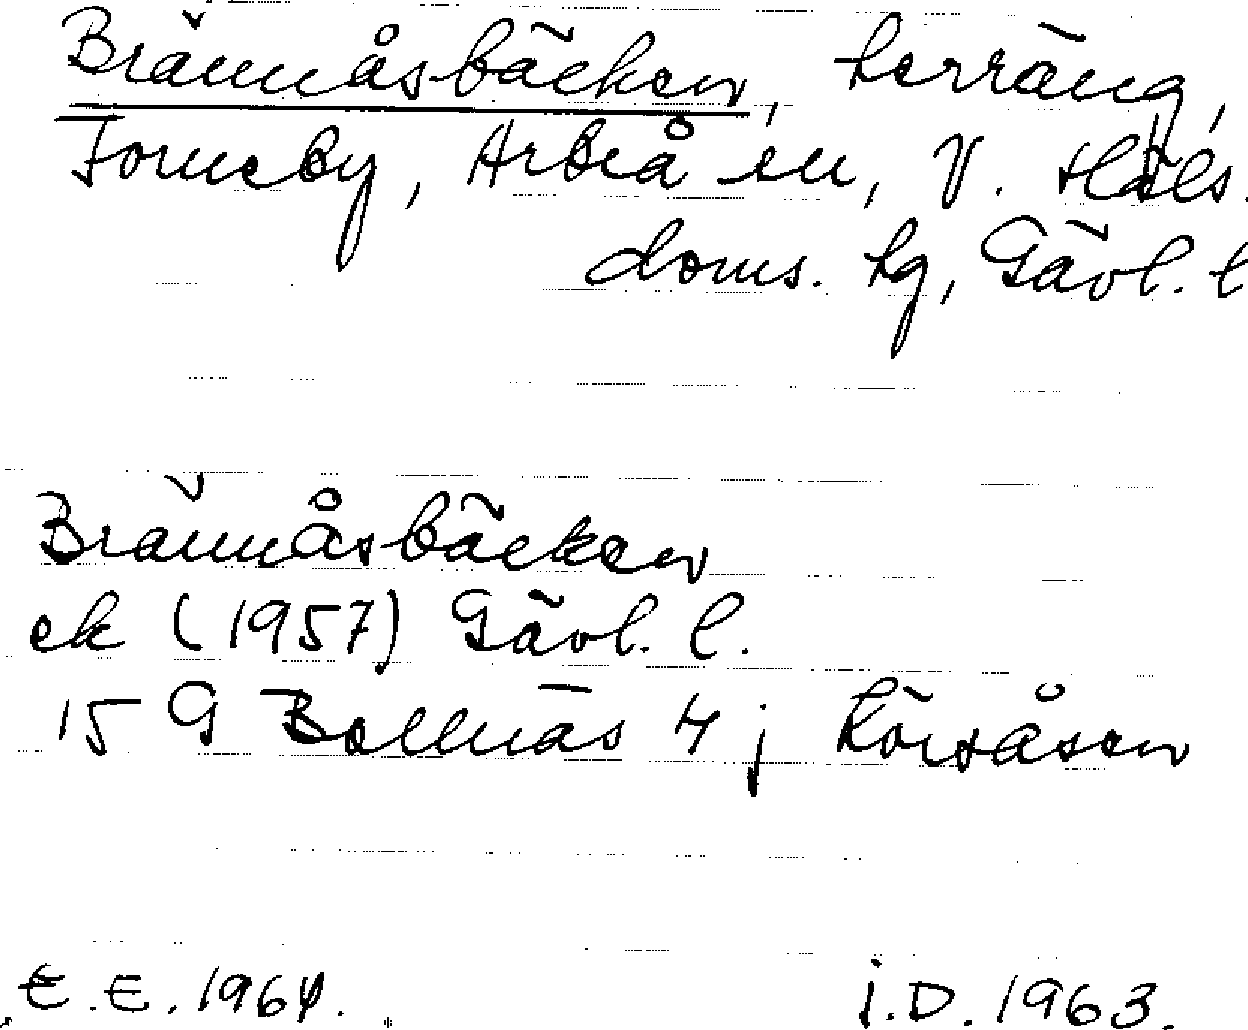 Brännåsbäcken, terräng,
Forneby, Arbrå sn, V. Häls.
doms. tg, Gävl. l
Brännåsbäcken
ek (1957) Gävl. l.
15 G Bollnäs 4 j
E.E. 1964.
J.D. 1963.